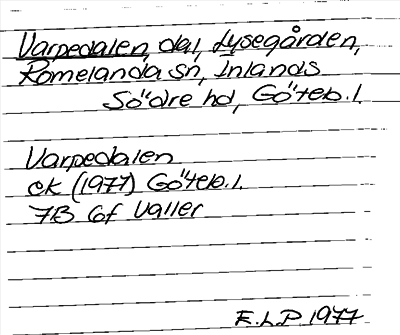 Varpedalen, dal, Lysegården,
Romelanda sn, Inlands
Södre hd, Göteb.l.
Varpedalen
ek (1977) Göteb.l.
7B 6f Valler
E.L.P. 1977